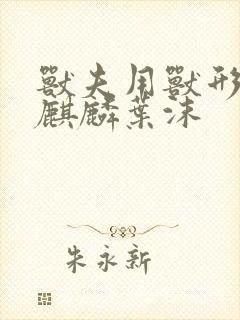 獸夫用獸形
麒麟葉沫
朱永新